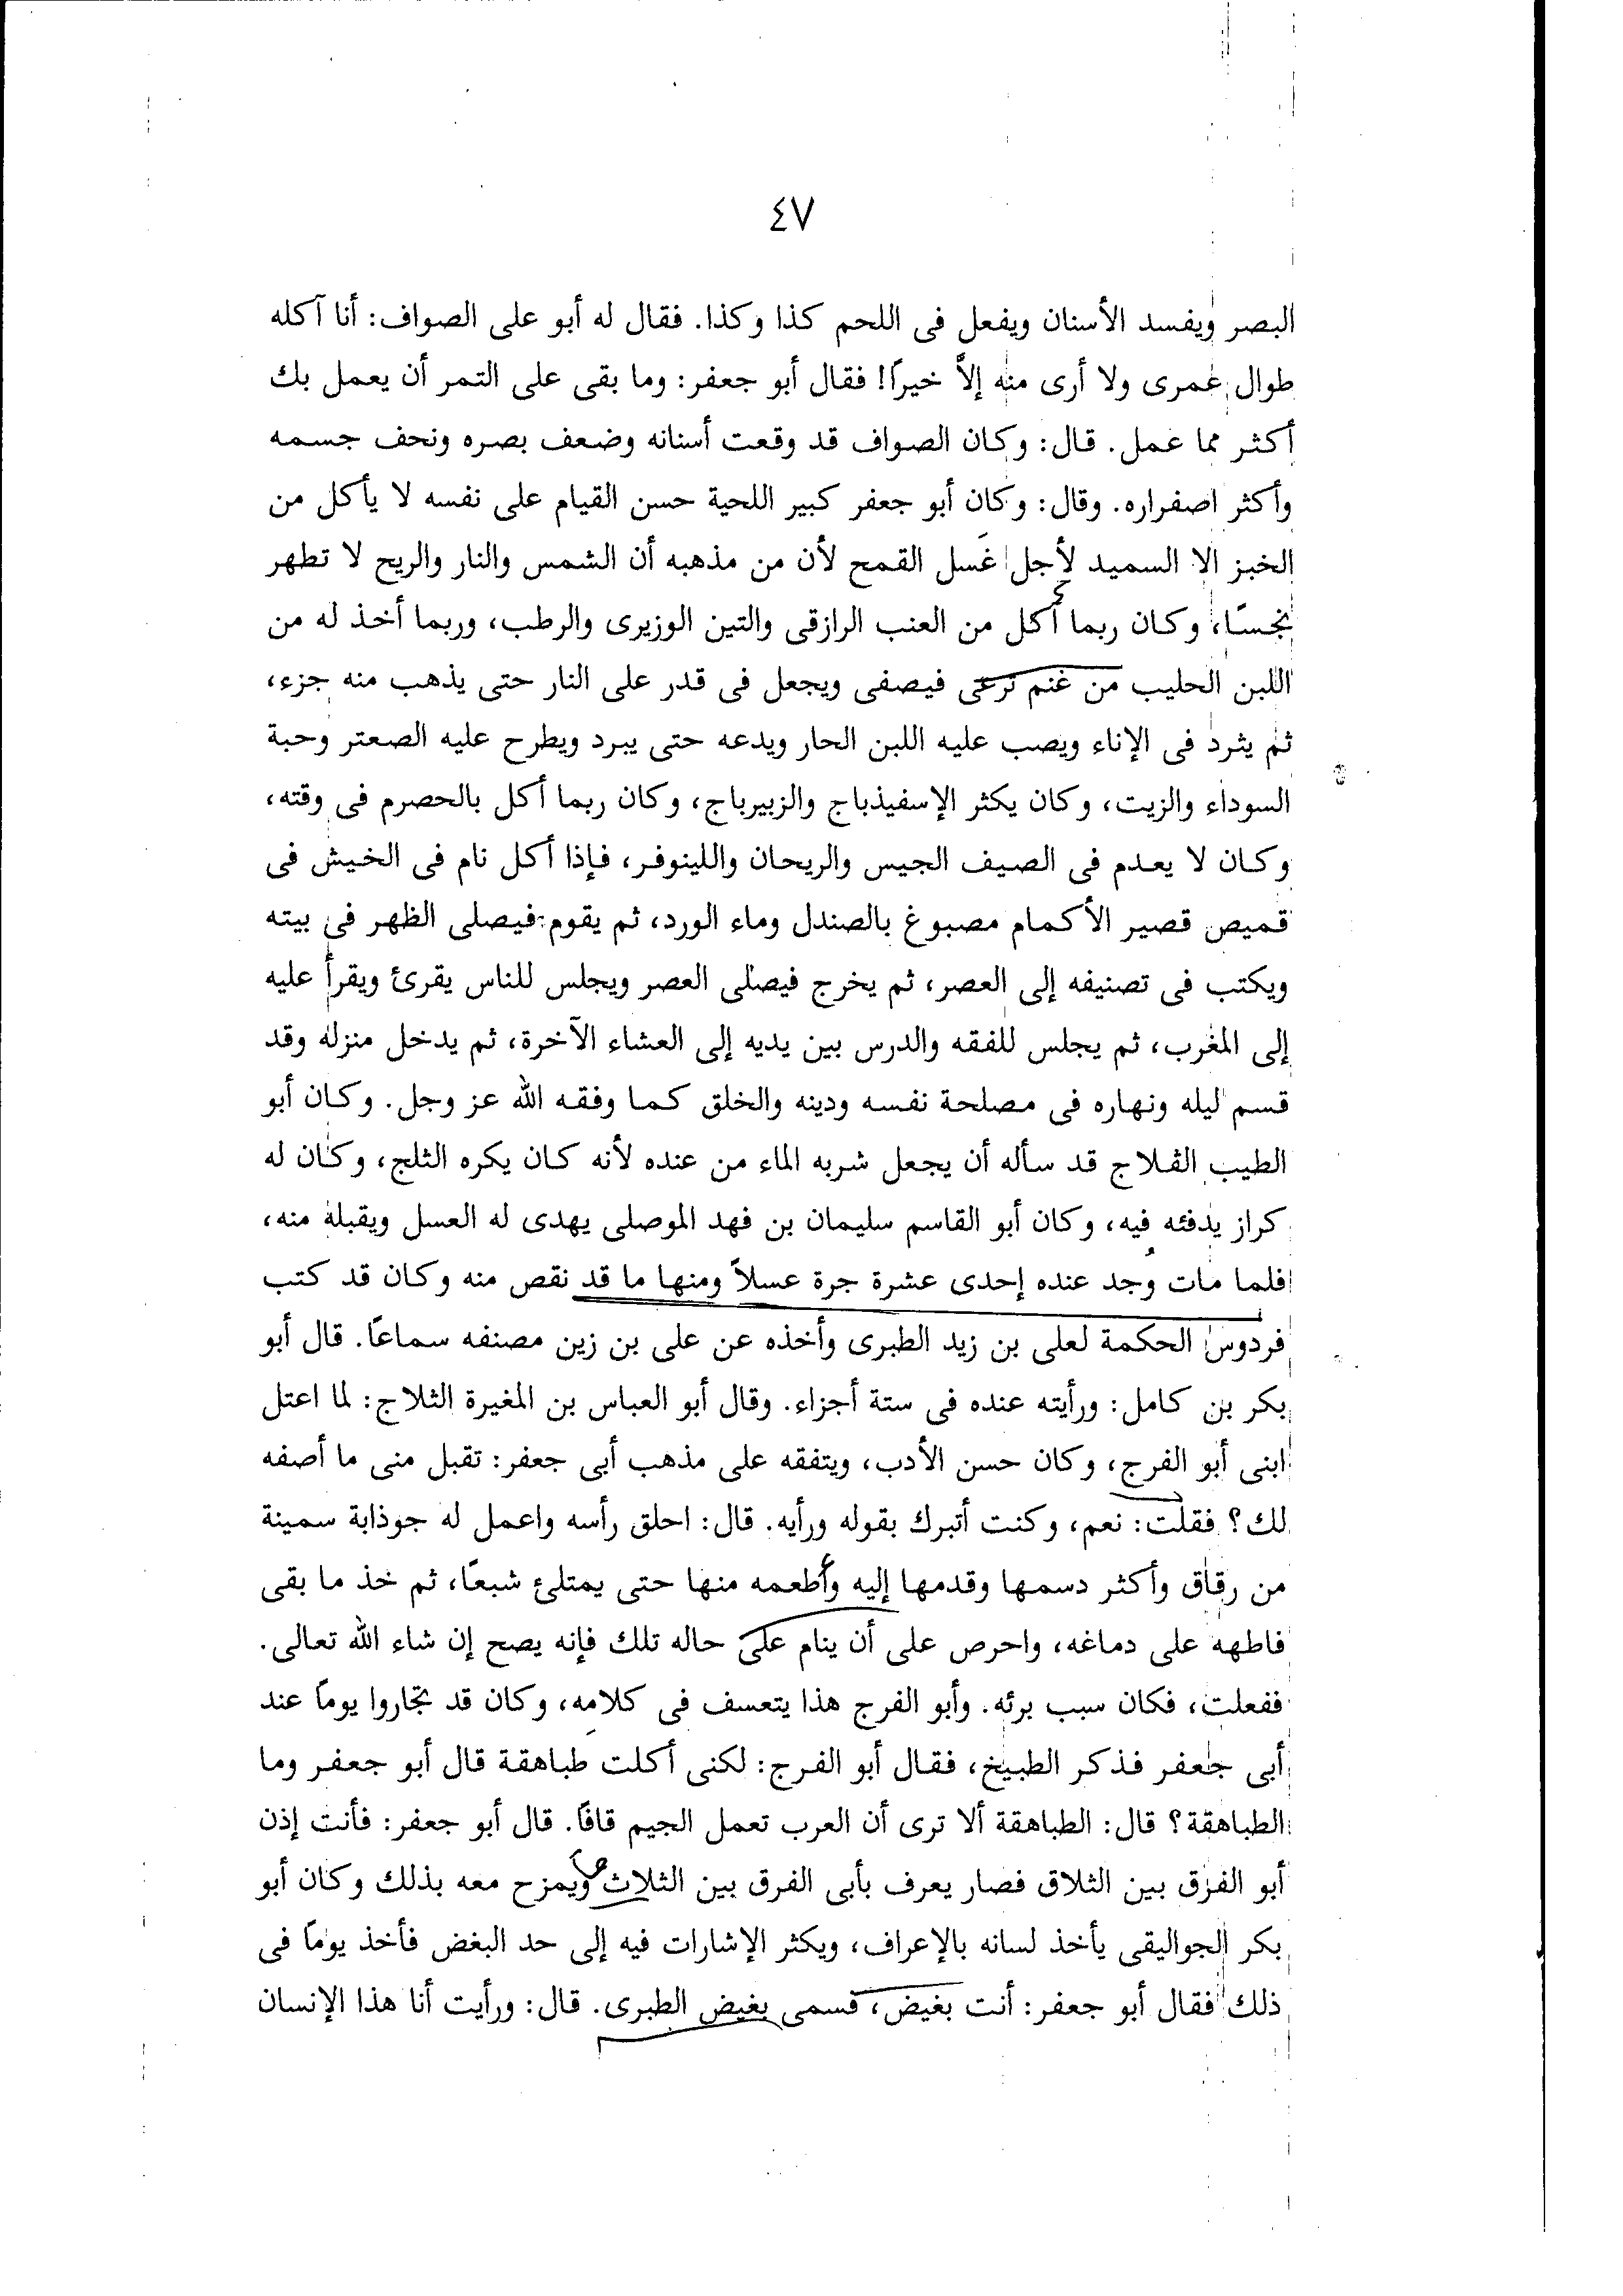 ٤٧
البصر ويفسد الأسنان ويفعل فى اللحم كذا وكذا. فقال له أبو على الصواف: أنا آكله
طوال عمرى ولا أرى منه إلاَّ خيرًا! فقال أبو جعفر: وما بقى على التمر أن يعمل بك
أكثر مما عمل. قال: وكان الصواف قد وقعت أسنانه وضعف بصره ونحف جسمه
وأكثر اصفراره. وقال: وكان أبو جعفر كبير اللحية حسن القيام على نفسه لا يأكل من
الخبز الا السميد لأجل غَسل القمح لأن من مذهبه أن الشمس والنار والريح لا تطهر
نجسًا، وكان ربما أكل من العنب الرازقى والتين الوزيرى والرطب، وربما أخذ له من
اللبن الحليب من غنم ترعى فيصفى ويجعل فى قدر على النار حتى يذهب منه جزء،
ثم يثرد فى الإناء ويصب عليه اللبن الحار ويدعه حتى يبرد ويطرح عليه الصعتر وحبة
السوداء والزيت، وكان يكثر الإسفيذباج والزبيرباج، وكان ربما أكل بالحصرم فى وقته،
وكان لا يعدم فى الصيف الجيس والريحان واللينوفر، فإذا أكل نام فى الخيش فى
قميص قصير الأكمام مصبوغ بالصندل وماء الورد، ثم يقوم فيصلى الظهر فى بيته
ويكتب فى تصنيفه إلى العصر، ثم يخرج فيصلى العصر ويجلس للناس يقرئ ويقرأ عليه
إلى المغرب، ثم يجلس للفقه والدرس بين يديه إلى العشاء الآخرة، ثم يدخل منزله وقد
قسم ليله ونهاره فى مصلحة نفسه ودينه والخلق كما وفقه الله عز وجل. وكان أبو
الطيب القلاج قد سأله أن يجعل شربه الماء من عنده لأنه كان يكره الثلج، وكان له
كراز يدفئه فيه، وكان أبو القاسم سليمان بن فهد الموصلى يهدى له العسل ويقبله منه،
فلما مات وُجد عنده إحدى عشرة جرة عسلاً ومنها ما قد نقص منه وكان قد كتب
فردوس الحكمة لعلى بن زيد الطبرى وأخذه عن على بن زين مصنفه سماعًا. قال أبو
بكر بن كامل: ورأيته عنده فى ستة أجزاء. وقال أبو العباس بن المغيرة الثلاج: لما اعتل
ابنى أبو الفرج، وكان حسن الأدب، ويتفقه على مذهب أبى جعفر: تقبل منى ما أصفه
لك؟ فقلت: نعم، وكنت أتبرك بقوله ورأيه. قال: احلق رأسه واعمل له جوذابة سمينة
من رقاق وأكثر دسمها وقدمها إليه وأطعمه منها حتى يمتلئ شبعًا، ثم خذ ما بقى
فاطهه على دماغه، واحرص على أن ينام على حاله تلك فإنه يصح إن شاء الله تعالى.
ففعلت، فكان سبب برئه. وأبو الفرج هذا يتعسف فى كلامه، وكان قد تجاروا يومًا عند
أبى جعفر فذكر الطبيخ، فقال أبو الفرج: لكنى أكلت طباهقة قال أبو جعفر وما
الطباهقة؟ قال: الطباهقة ألا ترى أن العرب تعمل الجيم قافًا. قال أبو جعفر: فأنت إذن
أبو الفرق بين الثلاق فصار يعرف بأبى الفرق بين الثلاث ويمزح معه بذلك وكان أبو
بكر الجواليقى يأخذ لسانه بالإعراف، ويكثر الإشارات فيه إلى حد البغض فأخذ يومًا فى
ذلك فقال أبو جعفر: أنت بغيض، فسمى بغيض الطبرى. قال: ورأيت أنا هذا الإنسان